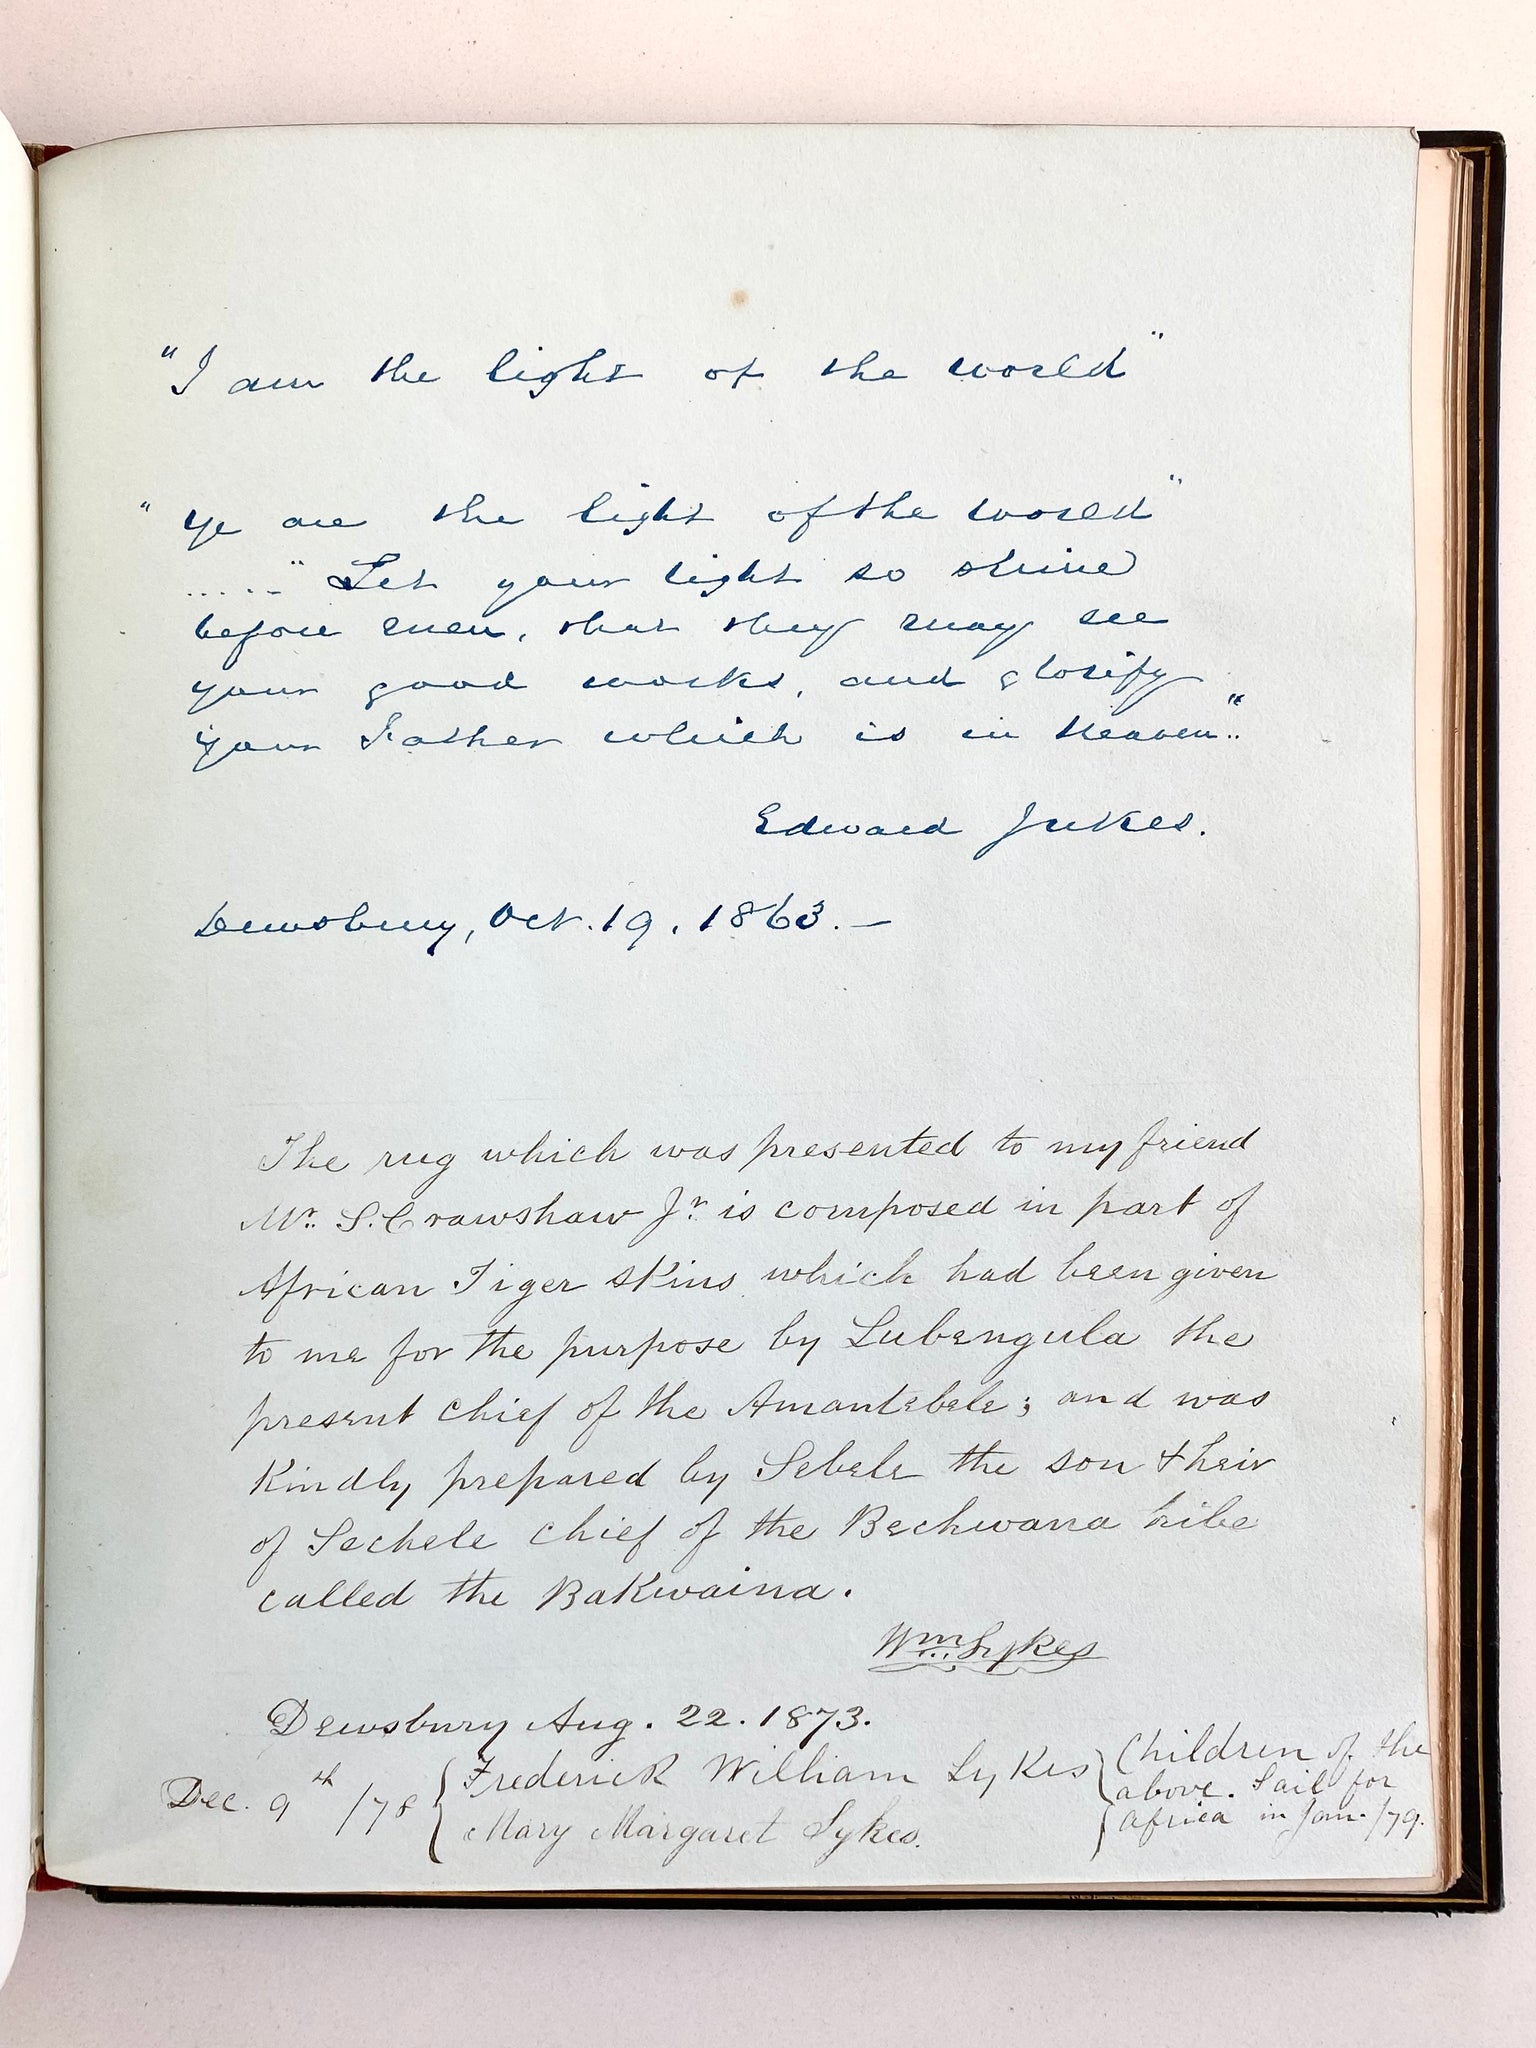 "I am the light of the world"
"Ye are the light of the world"
....." Let your light so shine
before men, that they may see
your good works, and glorify
your Father which is in Heaven.."
Edward Jukes.
Dewsbury, Oct. 19. 1863. —
The rug which was presented to my friend
Mr. S. Crawshaw Jr. is composed in part of
African Tiger skins which had been given
to me for the purpose by Lubengula the
present chief of the Amantebele; and was
kindly prepared by Sebele the son & heir
of Sechele chief of the Bechwana tribe
called the Bakwaina.
Wm. Sykes
Dewsbury Aug. 22. 1873.
Dec. 9th /78 { Frederick William Sykes } Children of the
above. Sail for
Mary Margaret Sykes. Africa in Jan. /79.